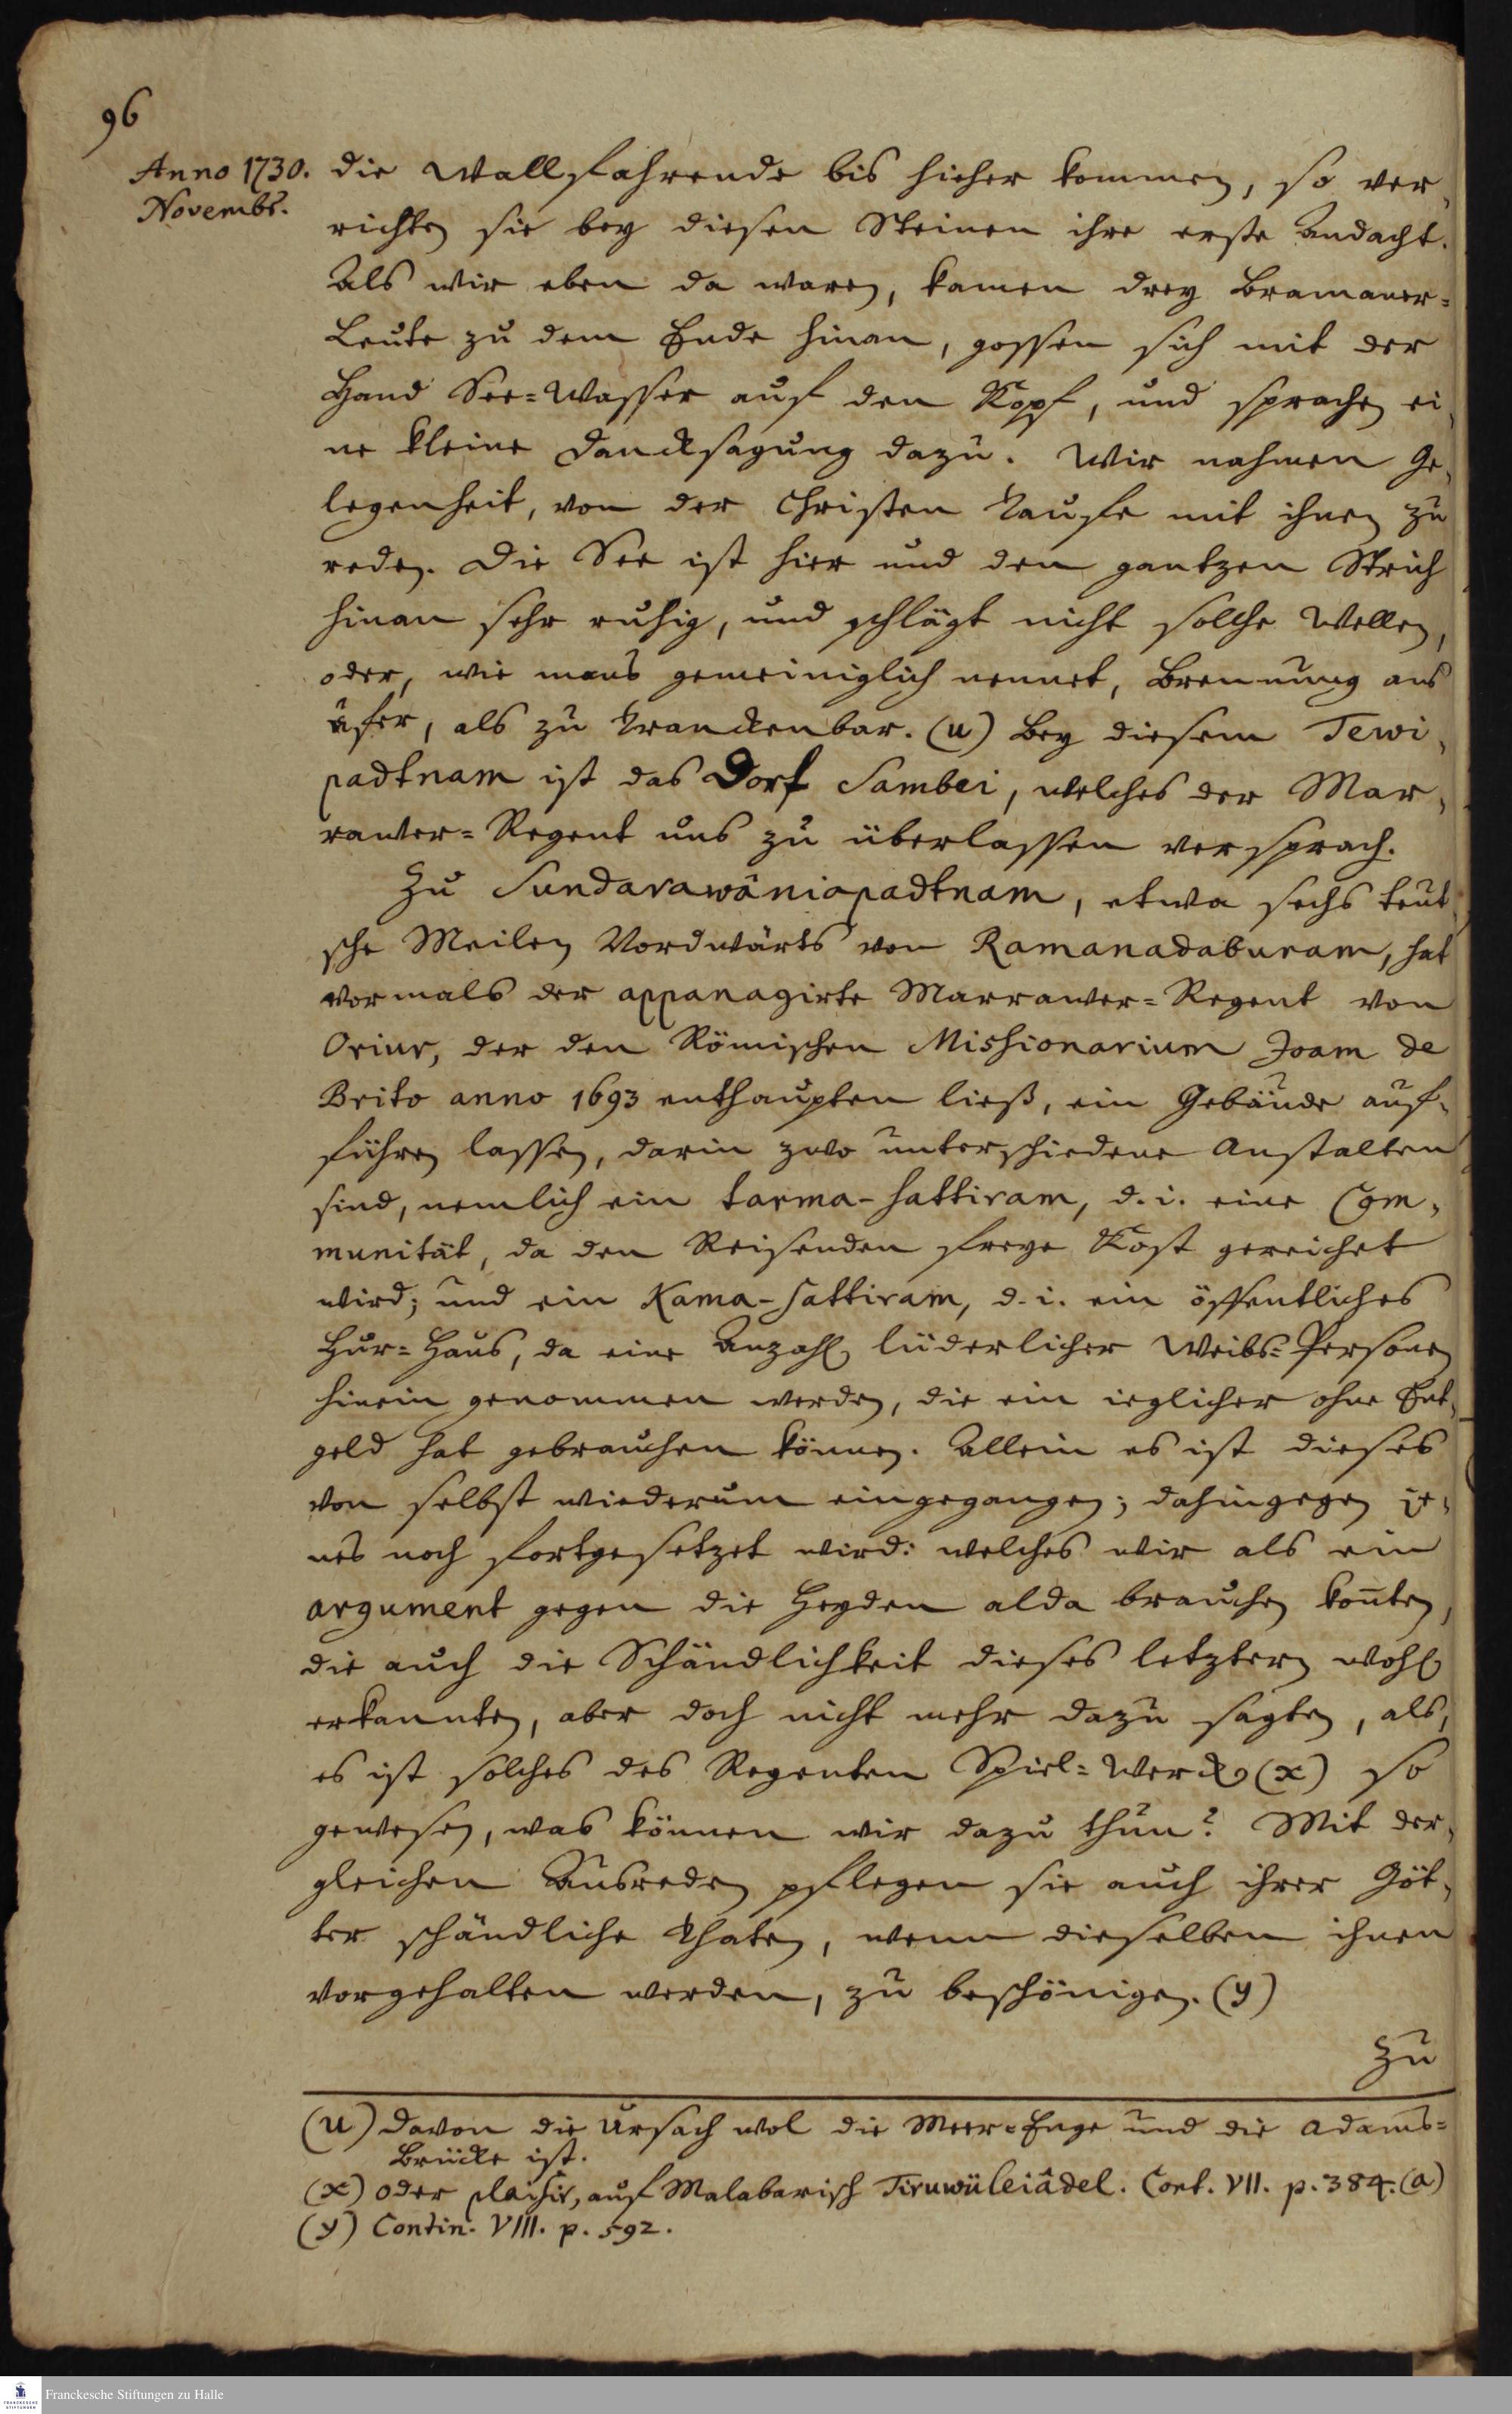 96
Anno 1730.
Novembr.
die Wallfahrende bis hieher kommen, so ver-
richten sie bey diesen Steinen ihre erste Andacht.
Als wir eben da waren, kamen drey Bramaner-
Leute zu dem Ende hinan, gossen sich mit der
Hand See-Wasser auf den Kopf, und sprachen ei-
ne kleine Dancksagung dazu. Wir nahmen Ge-
legenheit, von der Christen Taufe mit ihnen zu
reden. Die See ist hier und den gantzen Strich
hinan sehr ruhig, und schlägt nicht solche Wellen,
oder, wie mans gemeiniglich nennet, Brennung ans
Ufer, als zu Tranckenbar. (u) Bey diesem Tewi-
padtnam ist das Dorf Sambei, welches der Mar-
rawer-Regent uns zu überlassen versprach.
Zu Sundarawâniapadtnam, etwa sechs teut-
sche Meilen Nordwärts von Ramanadaburam, hat
vormals der appanagirte Marrawer-Regent von
Oriur, der den Römischen Missionarium Joam de
Brito anno 1693 enthaupten ließ, ein Gebäude auf-
führen lassen, darin zwo unterschiedene Anstalten
sind, nemlich ein tarma-sattiram, d. i. eine Com-
munität, da den Reisenden freye Kost gereichet
wird; und ein Kama-sattiram, d. i. ein öffentliches
Hur-Haus, da eine Anzahl lüderlicher Weibs-Personen
hinein genommen werden, die ein ieglicher ohne Ent-
geld hat gebrauchen können. Allein es ist dieses
von selbst wiederum eingegangen; dahingegen je-
nes noch fortgesetzet wird: welches wir als ein
argument gegen die Heyden alda brauchen kon̄ten,
die auch die Schändlichkeit dieses letztern wohl
erkannten, aber doch nicht mehr dazu sagten, als,
es ist solches des Regenten Spiel-Werck (x) so
gewesen, was können wir dazu thun? Mit der-
gleichen Ausreden pflegen sie auch ihrer Göt-
ter schändliche Thaten, wenn dieselben ihnen
vorgehalten werden, zu beschönigen. (y)
Zu
(u) Davon die Ursach wol die Meer-Enge und die Adams-
Brücke ist.
(x) oder plaisir, auf Malabarisch Tiruwüleiâdel. Cont. VII. p. 384. (a)
(y) Contin. VIII. p. 592.
Franckesche Stiftungen zu Halle